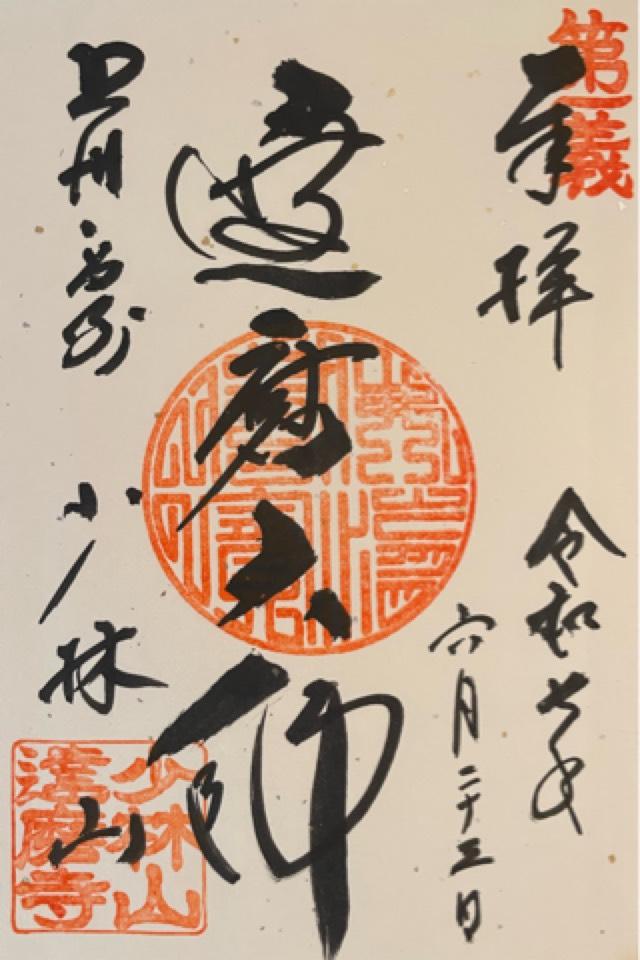 第一義
奉拝
令和七年
六月二十三日
達磨大師
上州高崎
少林山
少林山
達磨寺